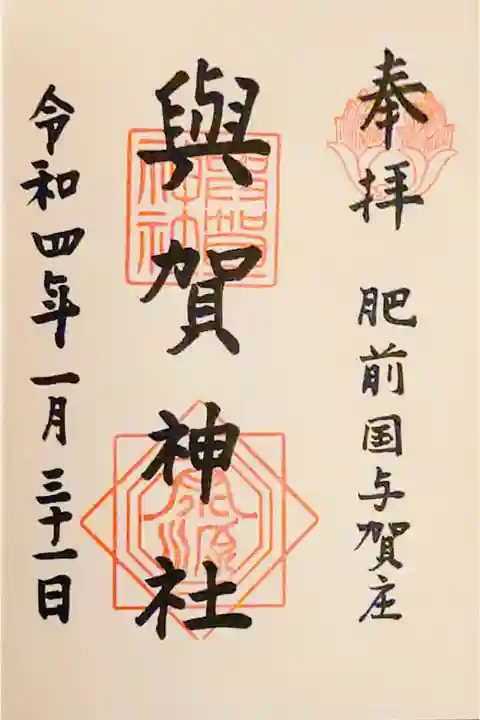 奉拝 肥前国与賀庄
與賀神社
令和四年一月三十一日